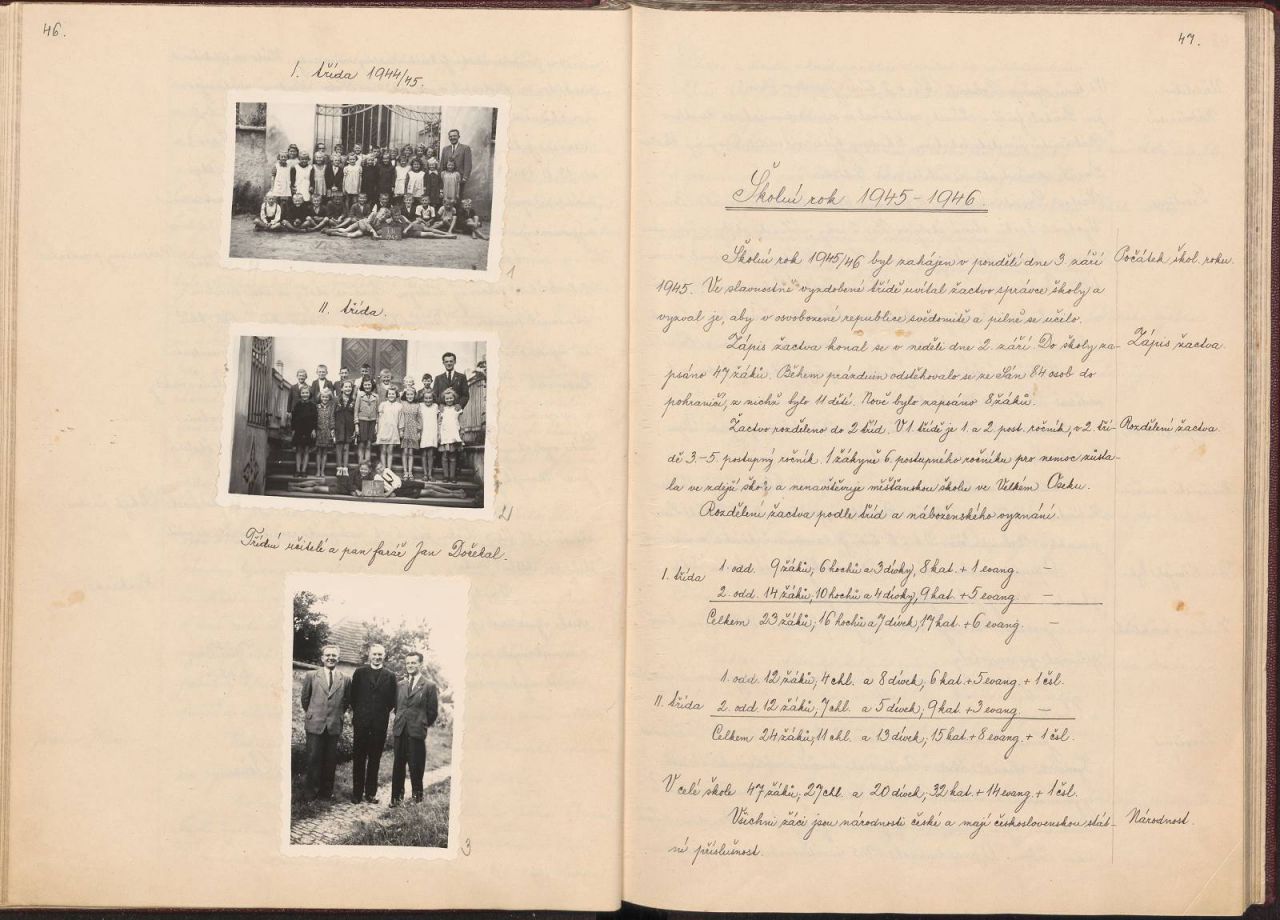 46.
I. třída 1944/45.
1
II. třída.
2
Třídní učitelé a pan farář Jan Dočekal.
3
47.
Školní rok 1945-1946.
Školní rok 1945/46 byl zahájen v pondělí dne 3. září
Počátek škol. roku.
1945. Ve slavnostně vyzdobené třídě uvítal žactvo správce školy a
vyzval je, aby v osvobozené republice svědomitě a pilně se učilo.
Zápis žactva konal se v neděli dne 2. září. Do školy za-
Zápis žactva.
psáno 47 žáků. Během prázdnin odstěhovalo se ze Sán 84 osob do
pohraničí, z nichž bylo 11 dětí. Nově bylo zapsáno 8 žáků.
Žactvo rozděleno do 2 tříd. V 1. třídě je 1. a 2. post. ročník, v 2. tří-
Rozdělení žactva.
dě 3.-5. postupný ročník. 1 žákyně 6. postupného ročníku pro nemoc zůsta-
la ve zdejší škole a nenavštěvuje měšťanskou školu ve Velkém Oseku.
Rozdělení žactva podle tříd a náboženského vyznání.
I. třída
1. odd. 9 žáků; 6 hochů a 3 dívky, 8 kat. + 1 evang. —
2. odd. 14 žáků; 10 hochů a 4 dívky, 9 kat. + 5 evang. —
Celkem 23 žáků; 16 hochů a 7 dívek, 17 kat. + 6 evang. —
II. třída
1. odd. 12 žáků; 4 chl. a 8 dívek; 6 kat. + 5 evang. + 1 čsl.
2. odd. 12 žáků; 7 chl. a 5 dívek; 9 kat. + 3 evang. —
Celkem 24 žáků; 11 chl. a 13 dívek; 15 kat. + 8 evang. + 1 čsl.
V celé škole 47 žáků; 27 chl. a 20 dívek; 32 kat. + 14 evang. + 1 čsl.
Všichni žáci jsou národnosti české a mají československou stát-
Národnost.
ní příslušnost.